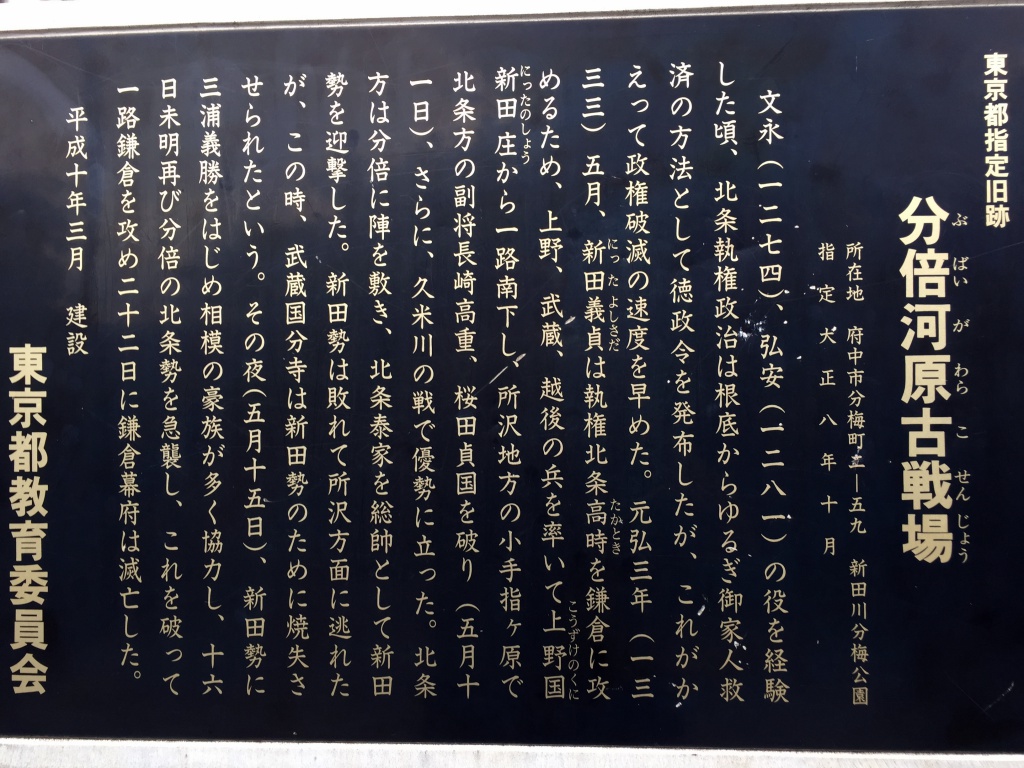 東京都指定旧跡
分倍河原古戦場
ぶばいがわらこせんじょう
所在地 府中市分梅町二―五九 新田川分梅公園
指定 大正八年十月
文永（一二七四）、弘安（一二八一）の役を経験
した頃、北条執権政治は根底からゆるぎ御家人救
済の方法として徳政令を発布したが、これがか
えって政権破滅の速度を早めた。元弘三年（一三
三三）五月、新田義貞は執権北条高時を鎌倉に攻
にったよしさだ
たかとき
めるため、上野、武蔵、越後の兵を率いて上野国
こうずけのくに
新田庄から一路南下し、所沢地方の小手指ヶ原で
にったのしょう
北条方の副将長崎高重、桜田貞国を破り（五月十
一日）、さらに、久米川の戦で優勢に立った。北条
方は分倍に陣を敷き、北条泰家を総帥として新田
勢を迎撃した。新田勢は敗れて所沢方面に逃れた
が、この時、武蔵国分寺は新田勢のために焼失さ
せられたという。その夜（五月十五日）、新田勢に
三浦義勝をはじめ相模の豪族が多く協力し、十六
日未明再び分倍の北条勢を急襲し、これを破って
一路鎌倉を攻め二十二日に鎌倉幕府は滅亡した。
平成十年三月 建設
東京都教育委員会